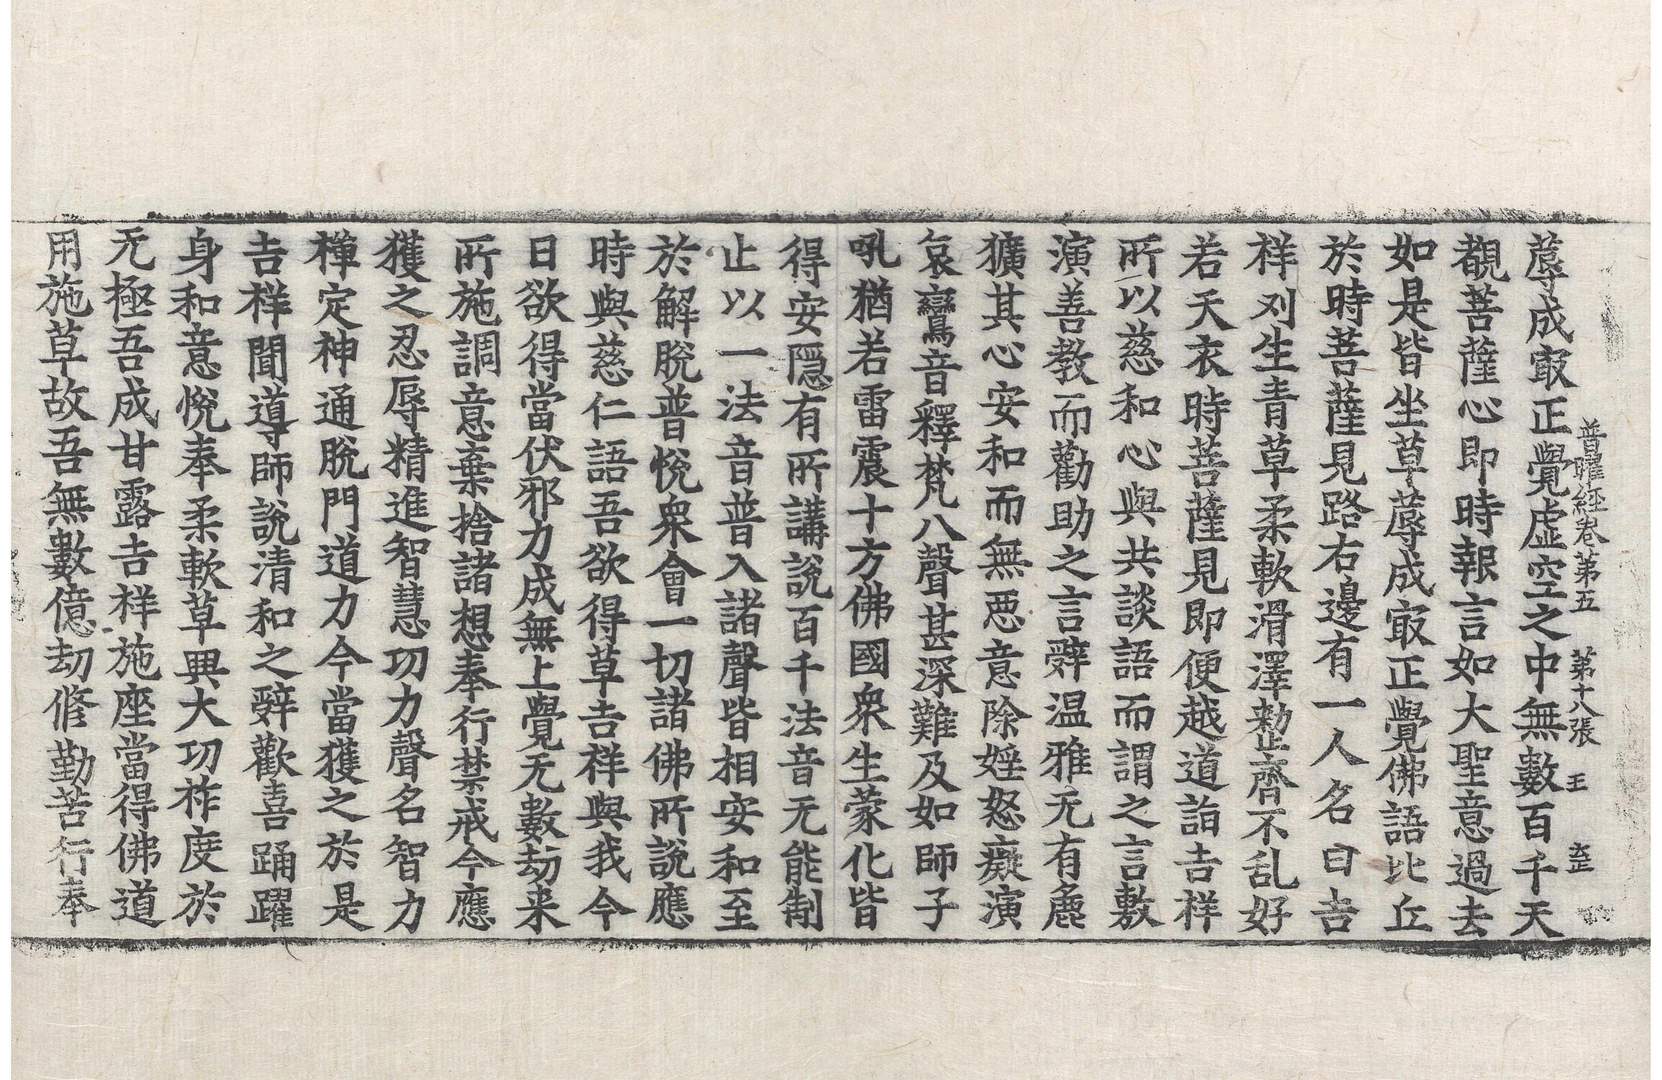 普曜經卷第五　第十八張　王
蓐成㝡正覺虛空之中無數百千天
觀菩薩心即時報言如大聖意過去
如是皆坐草蓐成㝡正覺佛語比丘
於時菩薩見路右邊有一人名曰吉
祥刈生青草柔軟滑澤整齊不乱好
若天衣時菩薩見即便越道詣吉祥
所以慈和心與共談語而謂之言敷
演善教而勸助之言辭温雅无有麁
獷其心安和而無惡意除婬怒癡演
哀鸞音釋梵八聲甚深難及如師子
吼猶若雷震十方佛國衆生蒙化皆
得安隠有所講說百千法音无能制
止以一法音普入諸聲皆相安和至
於解脫普悅衆會一切諸佛所說應
時與慈仁語吾欲得草吉祥與我今
日欲得當伏邪力成無上覺无數劫来
所施調意棄捨諸想奉行禁戒今應
獲之忍辱精進智慧功力聲名智力
禪定神通脫門道力今當獲之於是
吉祥聞導師說清和之辭歡喜踊躍
身和意悅奉柔軟草興大功祚度於
无極吾成甘露吉祥施座當得佛道
用施草故吾無數億劫修勤苦行奉